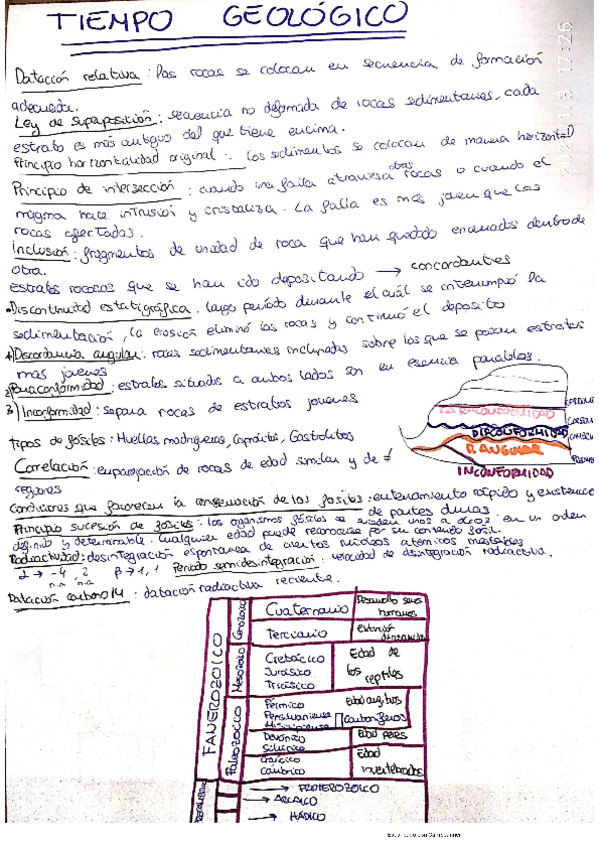 TIEMPO GEOLÓGICO
Datación relativa: Las rocas se colocan en secuencia de formación
adecuada.
Ley de superposición: secuencia no deformada de rocas sedimentarias, cada
estrato es más antiguo del que tiene encima.
Principio horizontalidad original: Los sedimentos se colocan de manera horizontal
Principio de intersección: cuando una falla atraviesa otras rocas o cuando el
magma hace intrusión y cristaliza. La falla es más joven que las
rocas afectadas.
Inclusión: fragmentos de unidad de roca que han quedado encerrados dentro de
otra.
estratos rocosos que se han ido depositando → concordantes
Discontinuidad estatigráfica. largo período durante el cuál se interrumpió la
sedimentación, la erosión eliminó las rocas y continuó el deposito
1) Discordancia angular: rocas sedimentarias inclinadas sobre los que se posan estratos
más jovenes
2) Paraconformidad: estratos situados a ambos lados son en esencia paralelos.
3) Inconformidad: separa rocas de estratos jovenes
PARACONFORMIDAD
DISCONFORMIDAD
D. ANGULAR
INCONFORMIDAD
Tipos de fósiles: Huellas, madrigueras, Coprolitos, Gastrolitos
Correlación: emparejación de rocas de edad similar y de ≠
regiones
Condiciones que favorecen la conservación de los fosiles: enterramiento rápido y existencia
de partes duras
Principio sucesión de fosiles: los organismos fósiles se suceden unos a otros en un orden
definido y determinable. Cualquier edad puede reconocerse por su contenido fósil.
Radiactividad: desintegración espontánea de ciertos núcleos atómicos inestables
α → -4, 2 β → 1, 1 Período semidesintegración: velocidad de desintegración radiactiva.
Datación carbono 14: datación radiactiva reciente.
FANEROZOICO
Cenozoico
Cuaternario Desarrollo seres
humanos
Terciario Extinción
dinosaurios
Mesozoico
Cretácico Edad de
Jurásico los
Triásico reptiles
Paleozoico
Pérmico Edad anfibios
Pensilvaniense Carboníferos
Misisipiense
Devónico Edad peces
Silúrico
Ordovícico Edad
Cámbrico invertebrados
→ PROTEROZOICO
→ ARCAICO
→ HÁDICO